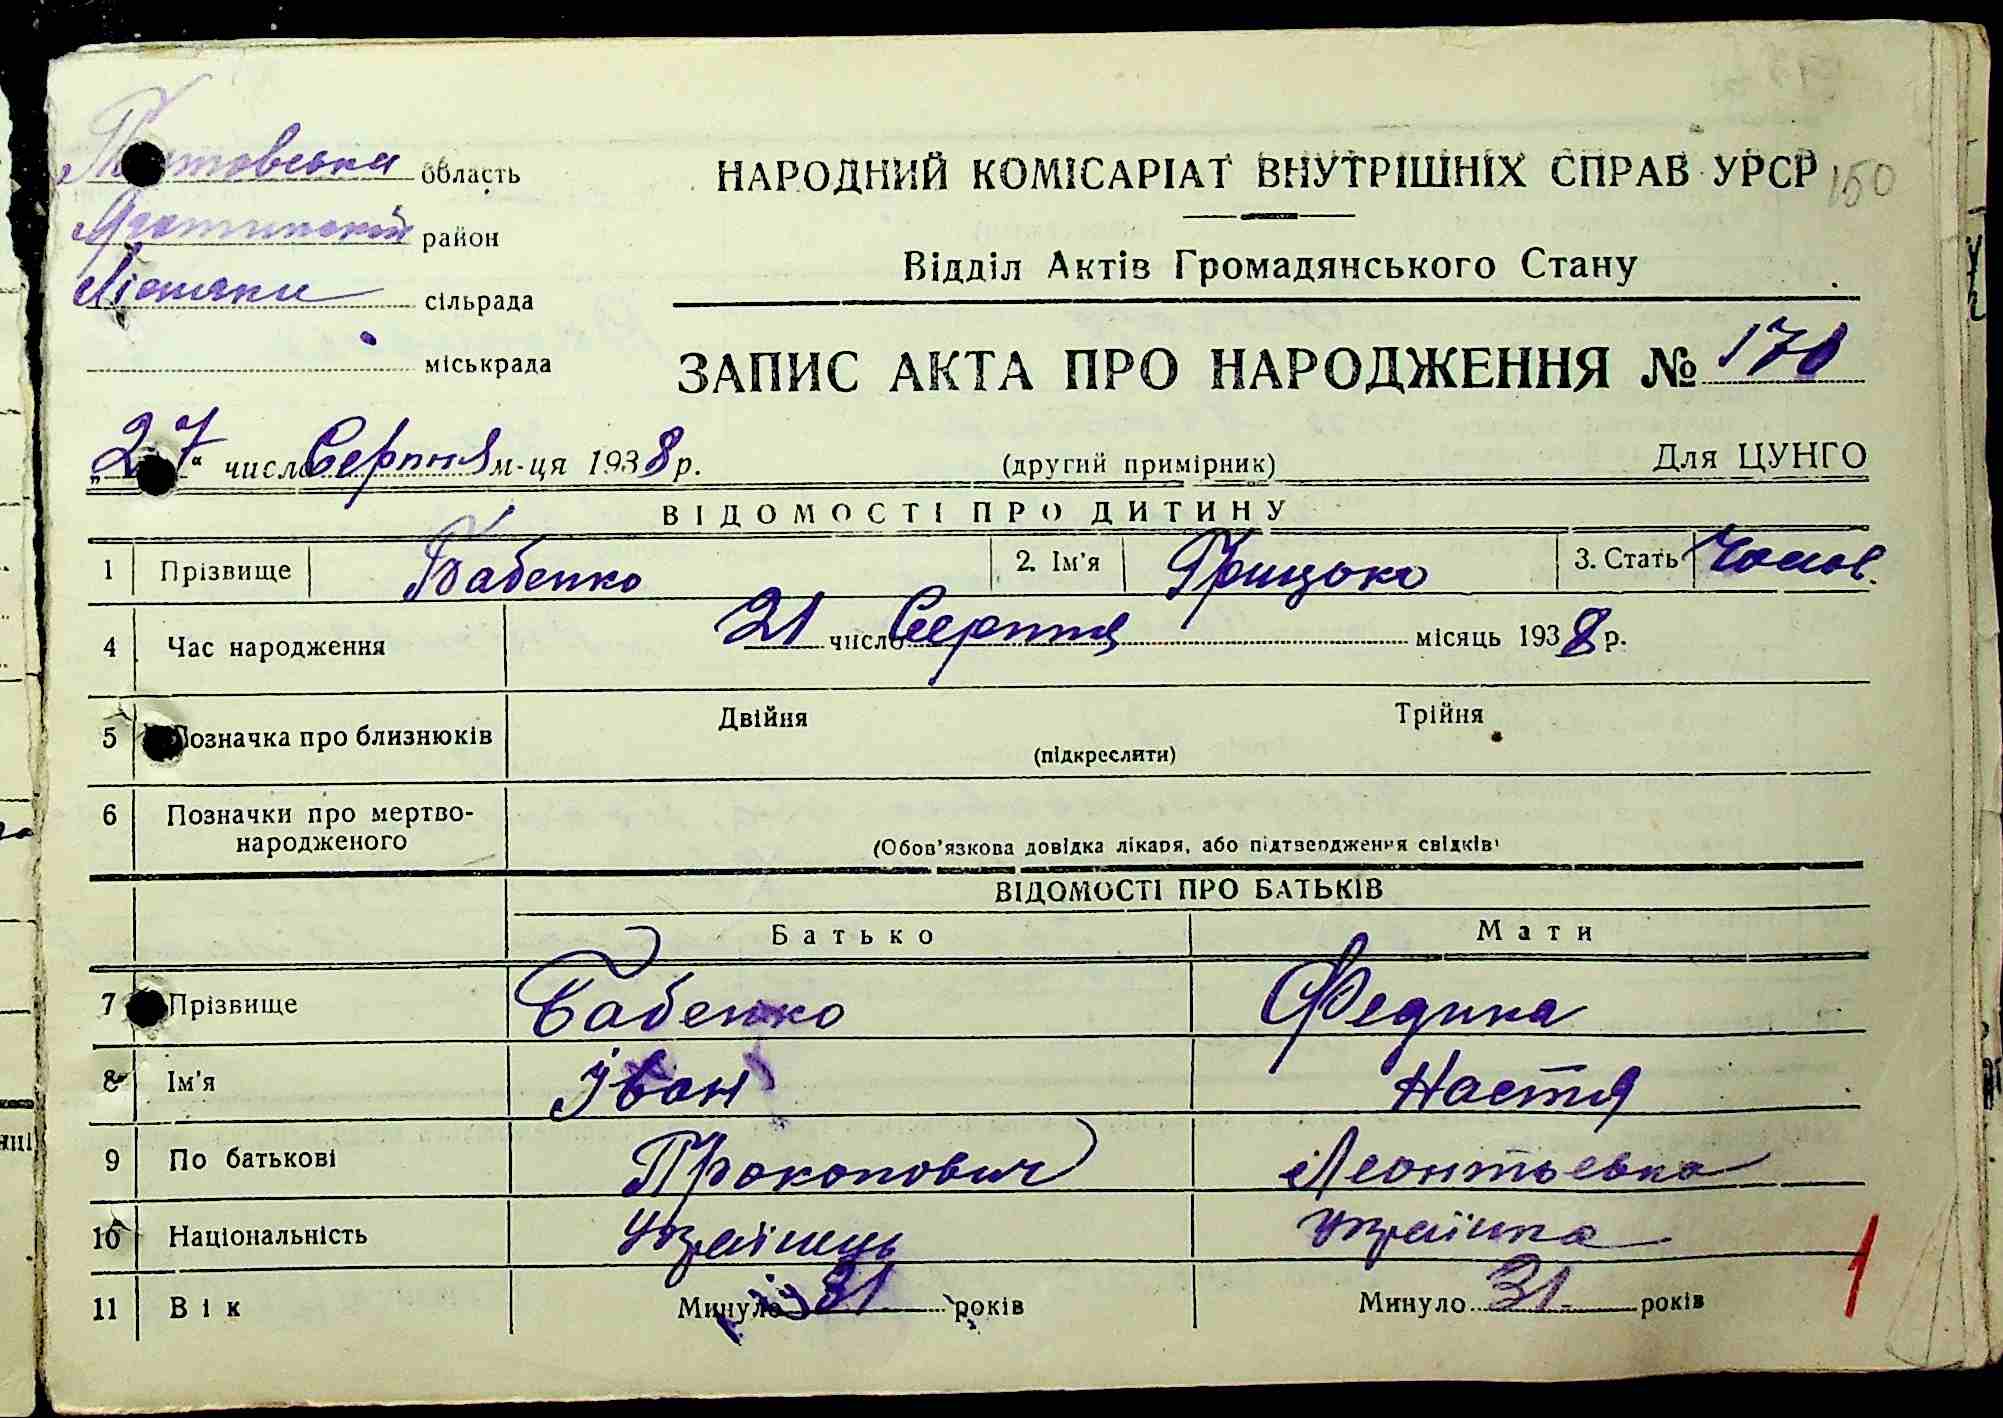 Полтовська область
Яготинский район
Лісняки сільрада
міськрада
НАРОДНИЙ КОМІСАРІАТ ВНУТРІШНІХ СПРАВ УРСР 150
Відділ Актів Громадянського Стану
ЗАПИС АКТА ПРО НАРОДЖЕННЯ № 170
„27“ число Серпня м-ця 1938 р. (другий примірник) Для ЦУНГО
ВІДОМОСТІ ПРО ДИТИНУ
1 Прізвище Бабенко 2. Ім'я Грицько 3. Стать Чолов.
4 Час народження 21 число Серпня місяць 1938 р.
5 Позначка про близнюків Двійня Трійня
(підкреслити)
6 Позначки про мертво-
народженого (Обов'язкова довідка лікаря, або підтвердження свідків)
ВІДОМОСТІ ПРО БАТЬКІВ
Батько Мати
7 Прізвище Бабенко Федина
8 Ім'я Іван Настя
9 По батькові Прокопович Леонтьевна
10 Національність Українець Українка
11 Вік Минуло 31 років Минуло 31 років
1